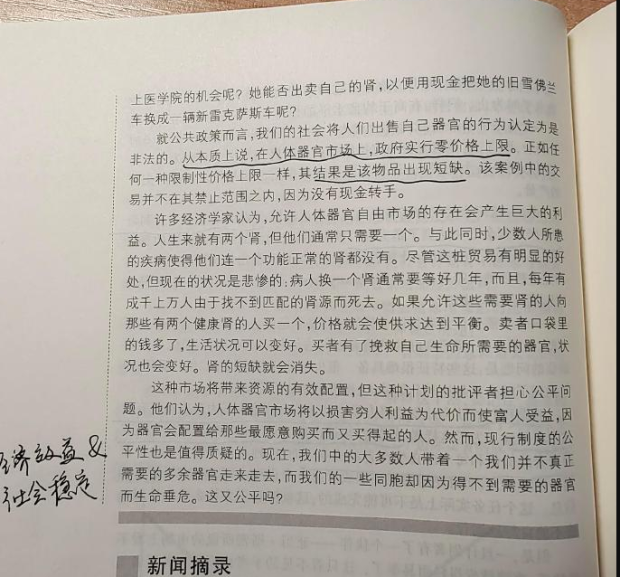 上医学院的机会呢？她能否出卖自己的肾，以便用现金把她的旧雪佛兰
车换成一辆新雷克萨斯车呢？
就公共政策而言，我们的社会将人们出售自己器官的行为认定为是
非法的。从本质上说，在人体器官市场上，政府实行零价格上限。正如任
何一种限制性价格上限一样，其结果是该物品出现短缺。该案例中的交
易并不在其禁止范围之内，因为没有现金转手。
许多经济学家认为，允许人体器官自由市场的存在会产生巨大的利
益。人生来就有两个肾，但他们通常只需要一个。与此同时，少数人所患
的疾病使得他们连一个功能正常的肾都没有。尽管这桩贸易有明显的好
处，但现在的状况是悲惨的：病人换一个肾通常要等好几年，而且，每年有
成千上万人由于找不到匹配的肾源而死去。如果允许这些需要肾的人向
那些有两个健康肾的人买一个，价格就会使供求达到平衡。卖者口袋里
的钱多了，生活状况可以变好。买者有了挽救自己生命所需要的器官，状
况也会变好。肾的短缺就会消失。
这种市场将带来资源的有效配置，但这种计划的批评者担心公平问
题。他们认为，人体器官市场将以损害穷人利益为代价而使富人受益，因
为器官会配置给那些最愿意购买而又买得起的人。然而，现行制度的公
平性也是值得质疑的。现在，我们中的大多数人带着一个我们并不真正
需要的多余器官走来走去，而我们的一些同胞却因为得不到需要的器官
而生命垂危。这又公平吗？
济效益 &
社会稳定
新闻摘录